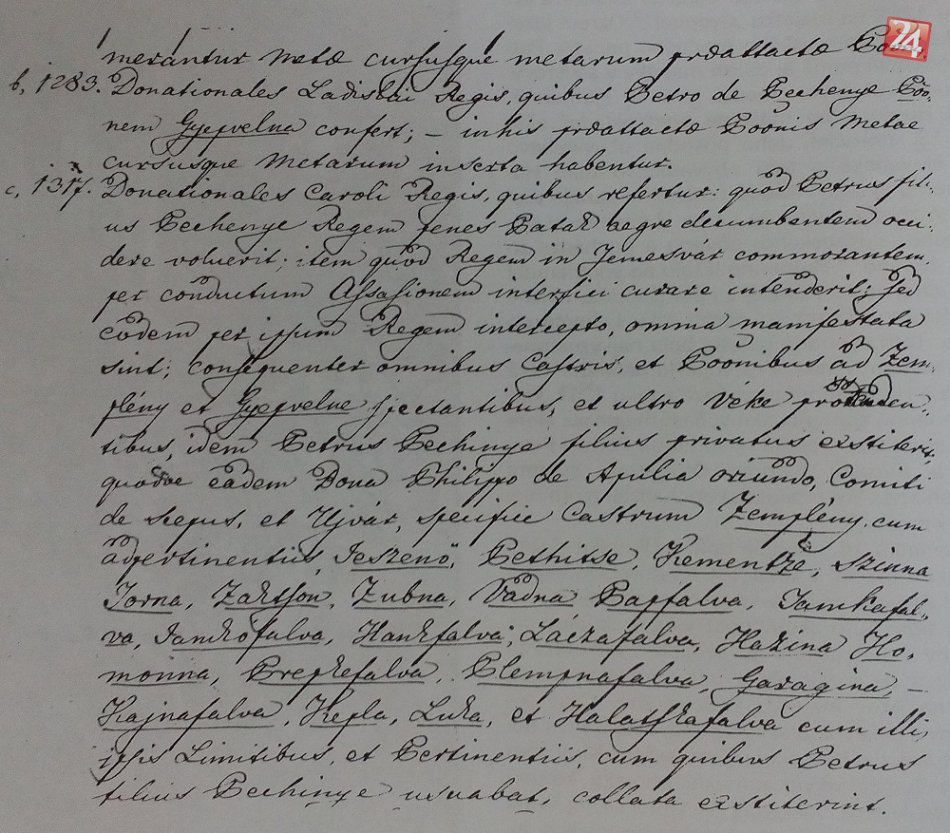 merantur Metæ cursusque metarum prdattactæ
24
b, 1283. Donationales Ladislai Regis, quibus Petro de Pechenye Poo,
nem Gyepvelna confert; – in his prdattactæ Poonis Metae
cursusque Metarum inserta habentur.
c, 1317. Donationales Caroli Regis, quibus refertur: quod Petrus fili,
us Pechenye Regem penes Patak aegre decumbentem occi,
dere voluerit; item quod Regem in Temesvár commorantem,
per conductum Assasionem interfici curare intenderit; sed
eodem per ipsum Regem intercepto, omnia manifestata
sint; consequenter omnibus Castris, et Poonibus ad Zem,
plény et Gyepvelne spectantibus, et ultro Véke
tibus, idem Petrus Pechinye filius privatus extiterit,
quodve eadem Bona Philippo de Apulia oriundo, Comiti
de Scepus, et Ujvár, specifice Castrum Zemplény cum
adpertinentiis, Jeszenö, Pethitse, Kementze, Szinna
Torna, Zubna, Vádna Papfalva, Jamkafal,
va, Jankofalva, Hankfalva, Láczafalva, Hazina Ho,
monna, Prepkefalva, Clempnafalva, Garagina, –
Kajnafalva, Kepla, Luka, et Halatskafalva cum illi,
ipsis Limitibus, et Pertinentiis, cum quibus Petrus
filius Pechinye usuabat, collata extiterint.